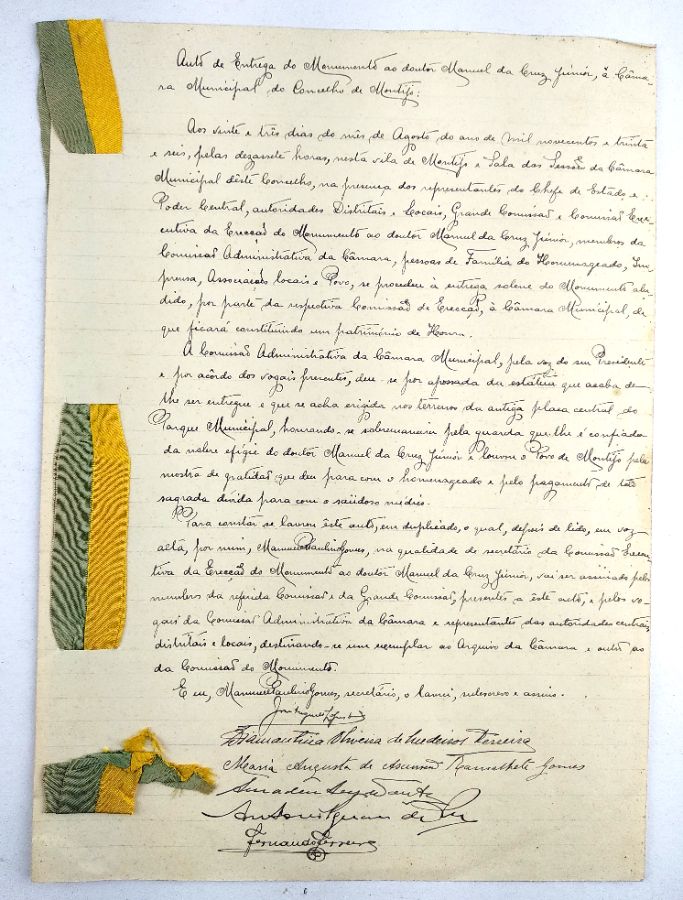 Auto de Entrega do Monumento ao doutor Manuel da Cruz Júnior, à Câma-
ra Municipal do Concelho de Montijo:
Aos vinte e três dias do mês de Agosto do ano de mil novecentos e trinta
e seis, pelas dezassete horas, nesta vila de Montijo e Sala das Sessões da Câmara
Municipal dêste Concelho, na presença dos representantes do Chefe de Estado e
Poder Central, autoridades Distritais e Locais, Grande Comissão e Comissão Exe-
cutiva da Erecção do Monumento ao doutor Manuel da Cruz Júnior, membros da
Comissão Administrativa da Câmara, pessoas de Família do Homenageado, Im-
prensa, Associações locais e Povo, se procedeu à entrega solene do Monumento alu-
dido, por parte da respectiva Comissão de Erecção, à Câmara Municipal, de
que ficará constituindo um património de Honra.
A Comissão Administrativa da Câmara Municipal, pela voz do seu Presidente
e por acôrdo dos vogais presentes, deu-se por apossada da estátua que acaba de
lhe ser entregue e que se acha erigida nos terrenos da antiga placa central do
Parque Municipal, honrando-se sobremaneira pela guarda que lhe é confiada
da nobre efígie do doutor Manuel da Cruz Júnior e louvou o Povo de Montijo pela
mostra de gratidão que deu para com o homenageado e pelo pagamento de tão
sagrada dívida para com o saüdoso médico.
Para constar se lavrou êste auto, em duplicado, o qual, depois de lido, em voz
alta, por mim, Manuel Paulino Gomes, na qualidade de secretário da Comissão Execu-
tiva da Erecção do Monumento ao doutor Manuel da Cruz Júnior, vai ser assinado pelos
membros da referida Comissão e da Grande Comissão, presentes a êste acto, e pelos vo-
gais da Comissão Administrativa da Câmara e representantes das autoridades centrais,
distritais e locais, destinando-se um exemplar ao Arquivo da Câmara e outro ao
da Comissão do Monumento.
E eu, Manuel Paulino Gomes, secretário, o lavrei, subscrevo e assino.
Diamantina Oliveira de Medeiros Ferreira
Maria Augusta de Gomes
António de
Fernando Ferreira